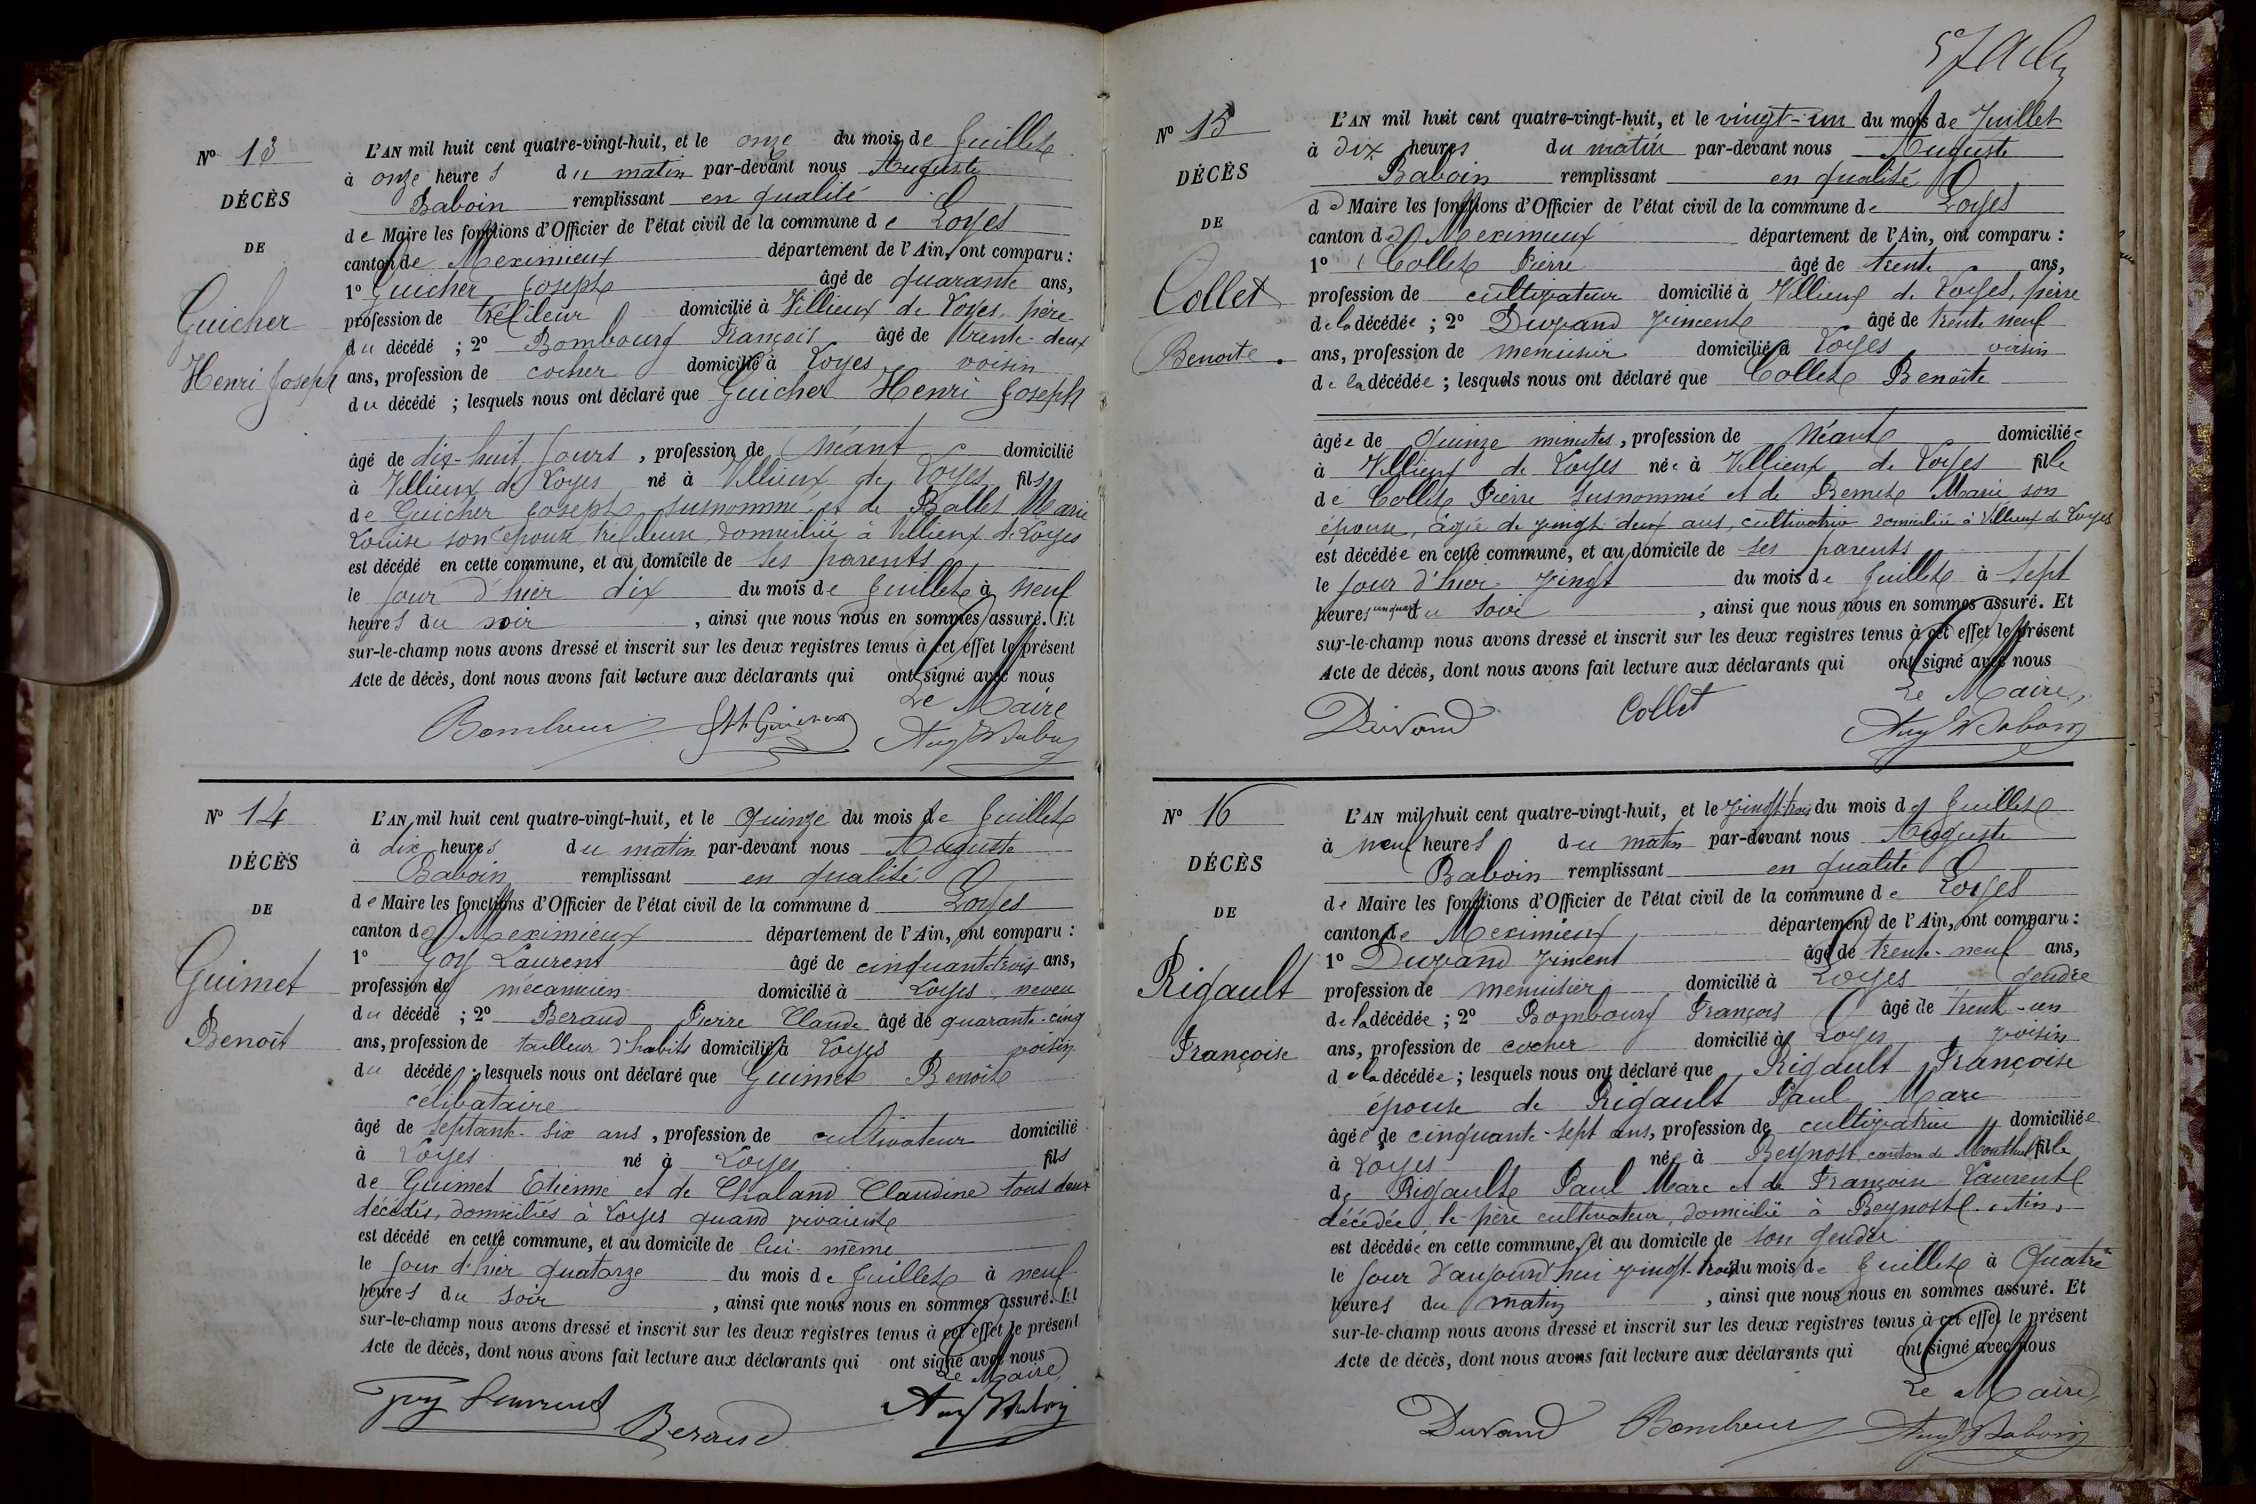 Nº 13
DÉCÈS
DE
Guicher
Henri Joseph
L'AN mil huit cent quatre-vingt-huit, et le onze du mois de Juillet
à onze heures du matin par-devant nous Auguste
Baboin remplissant en qualité
de Maire les fonctions d'Officier de l'état civil de la commune de Loyes
canton de Meximieux département de l'Ain, ont comparu :
1º Guicher Joseph âgé de quarante ans,
profession de tréfileur domicilié à Villieux de Loyes, père
du décédé ; 2º Bombourg François âgé de trente-deux
ans, profession de cocher domicilié à Loyes voisin
du décédé ; lesquels nous ont déclaré que Guicher Henri Joseph
âgé de dix-huit jours, profession de Néant domicilié
à Villieux de Loyes né à Villieux de Loyes fils
de Guicher Joseph susnommé et de Ballet Marie
Louise son épouse tréfileuse, domiciliée à Villieux de Loyes
est décédé en cette commune, et au domicile de ses parents
le jour d'hier dix du mois de Juillet à neuf
heures du soir , ainsi que nous nous en sommes assuré. Et
sur-le-champ nous avons dressé et inscrit sur les deux registres tenus à cet effet le présent
Acte de décès, dont nous avons fait lecture aux déclarants qui ont signé avec nous
Le Maire
Nº 14
DÉCÈS
DE
Guimet
Benoît
L'AN mil huit cent quatre-vingt-huit, et le quinze du mois de Juillet
à dix heures du matin par-devant nous Auguste
Baboin remplissant en qualité
de Maire les fonctions d'Officier de l'état civil de la commune d Loyes
canton de Meximieux département de l'Ain, ont comparu :
1º Goy Laurent âgé de cinquante-trois ans,
profession de mécanicien domicilié à Loyes neveu
du décédé ; 2º Beraud Pierre Claude âgé de quarante-cinq
ans, profession de tailleur d'habits domicilié à Loyes voisin
du décédé ; lesquels nous ont déclaré que Guimet Benoît
célibataire
âgé de septante-six ans, profession de cultivateur domicilié
à Loyes né à Loyes fils
de Guimet Etienne et de Chaland Claudine tous deux
décédés, domiciliés à Loyes quand vivaient
est décédé en cette commune, et au domicile de lui-même
le jour d'hier quatorze du mois de Juillet à neuf
heures du soir , ainsi que nous nous en sommes assuré. Et
sur-le-champ nous avons dressé et inscrit sur les deux registres tenus à cet effet le présent
Acte de décès, dont nous avons fait lecture aux déclarants qui ont signé avec nous
Le Maire,
Goy Laurent
Beraud
Nº 15
DÉCÈS
DE
Collet
Benoite.
L'AN mil huit cent quatre-vingt-huit, et le vingt-un du mois de Juillet
à dix heures du matin par-devant nous Auguste
Baboin remplissant en qualité
de Maire les fonctions d'Officier de l'état civil de la commune de Loyes
canton de Meximieux département de l'Ain, ont comparu :
1º Collet Pierre âgé de trente ans,
profession de cultivateur domicilié à Villieux de Loyes, père
de la décédée ; 2º Durand Vincent âgé de trente neuf
ans, profession de menuisier domicilié à Loyes voisin
de la décédée ; lesquels nous ont déclaré que Collet Benoîte
âgée de Quinze minutes, profession de Néant domiciliée
à Villieux de Loyes née à Villieux de Loyes fille
de Collet Pierre susnommé et de Bernet Marie son
épouse, âgée de vingt-deux ans, cultivatrice domiciliée à Villieux de Loyes
est décédée en cette commune, et au domicile de ses parents
le jour d'hier vingt du mois de Juillet à sept
heures un quart du soir , ainsi que nous nous en sommes assuré. Et
sur-le-champ nous avons dressé et inscrit sur les deux registres tenus à cet effet le présent
Acte de décès, dont nous avons fait lecture aux déclarants qui ont signé avec nous
Le Maire,
Durand Collet Aug Baboin
Nº 16
DÉCÈS
DE
Rigault
Françoise
L'AN mil huit cent quatre-vingt-huit, et le vingt-trois du mois de Juillet
à neuf heures du matin par-devant nous Auguste
Baboin remplissant en qualité
de Maire les fonctions d'Officier de l'état civil de la commune de Loyes
canton de Meximieux département de l'Ain, ont comparu :
1º Durand Vincent âgé de trente-neuf ans,
profession de menuisier domicilié à Loyes gendre
de la décédée ; 2º Bombourg François âgé de trente-un
ans, profession de cocher domicilié à Loyes voisin
de la décédée ; lesquels nous ont déclaré que Rigault Françoise
épouse de Rigault Paul Marc
âgée de cinquante-sept ans, profession de cultivatrice domiciliée
à Loyes née à Beynost canton de Montluel fille
de Rigault Paul Marc et de Françoise Laurent
décédée, le père cultivateur, domicilié à Beynost Ain,
est décédée en cette commune, et au domicile de son gendre
le jour d'aujourd'hui vingt-trois du mois de Juillet à Quatre
heures du matin , ainsi que nous nous en sommes assuré. Et
sur-le-champ nous avons dressé et inscrit sur les deux registres tenus à cet effet le présent
Acte de décès, dont nous avons fait lecture aux déclarants qui ont signé avec nous
Le Maire,
Durand Aug Baboin